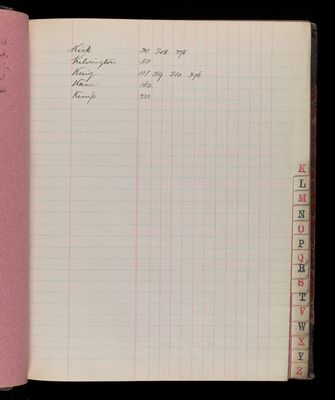 Kirk 30 208 395
Kelvington 50
King 111 159 210 396
Kane 162
Kemp 233
K
L
M
N
O
P
Q
R
S
T
V
W
X
Y
Z